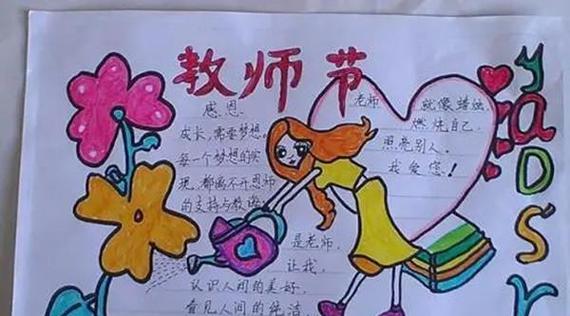 教师节
感恩
成长,需要梦想。
每一个梦想的实
现,都离不开恩师
的支持与教诲
老师 就像蜡烛
燃烧自己,
照亮别人。
我爱您!
是老师,
让我,
认识人间的美好,
看见人间的纯洁,
YADSY